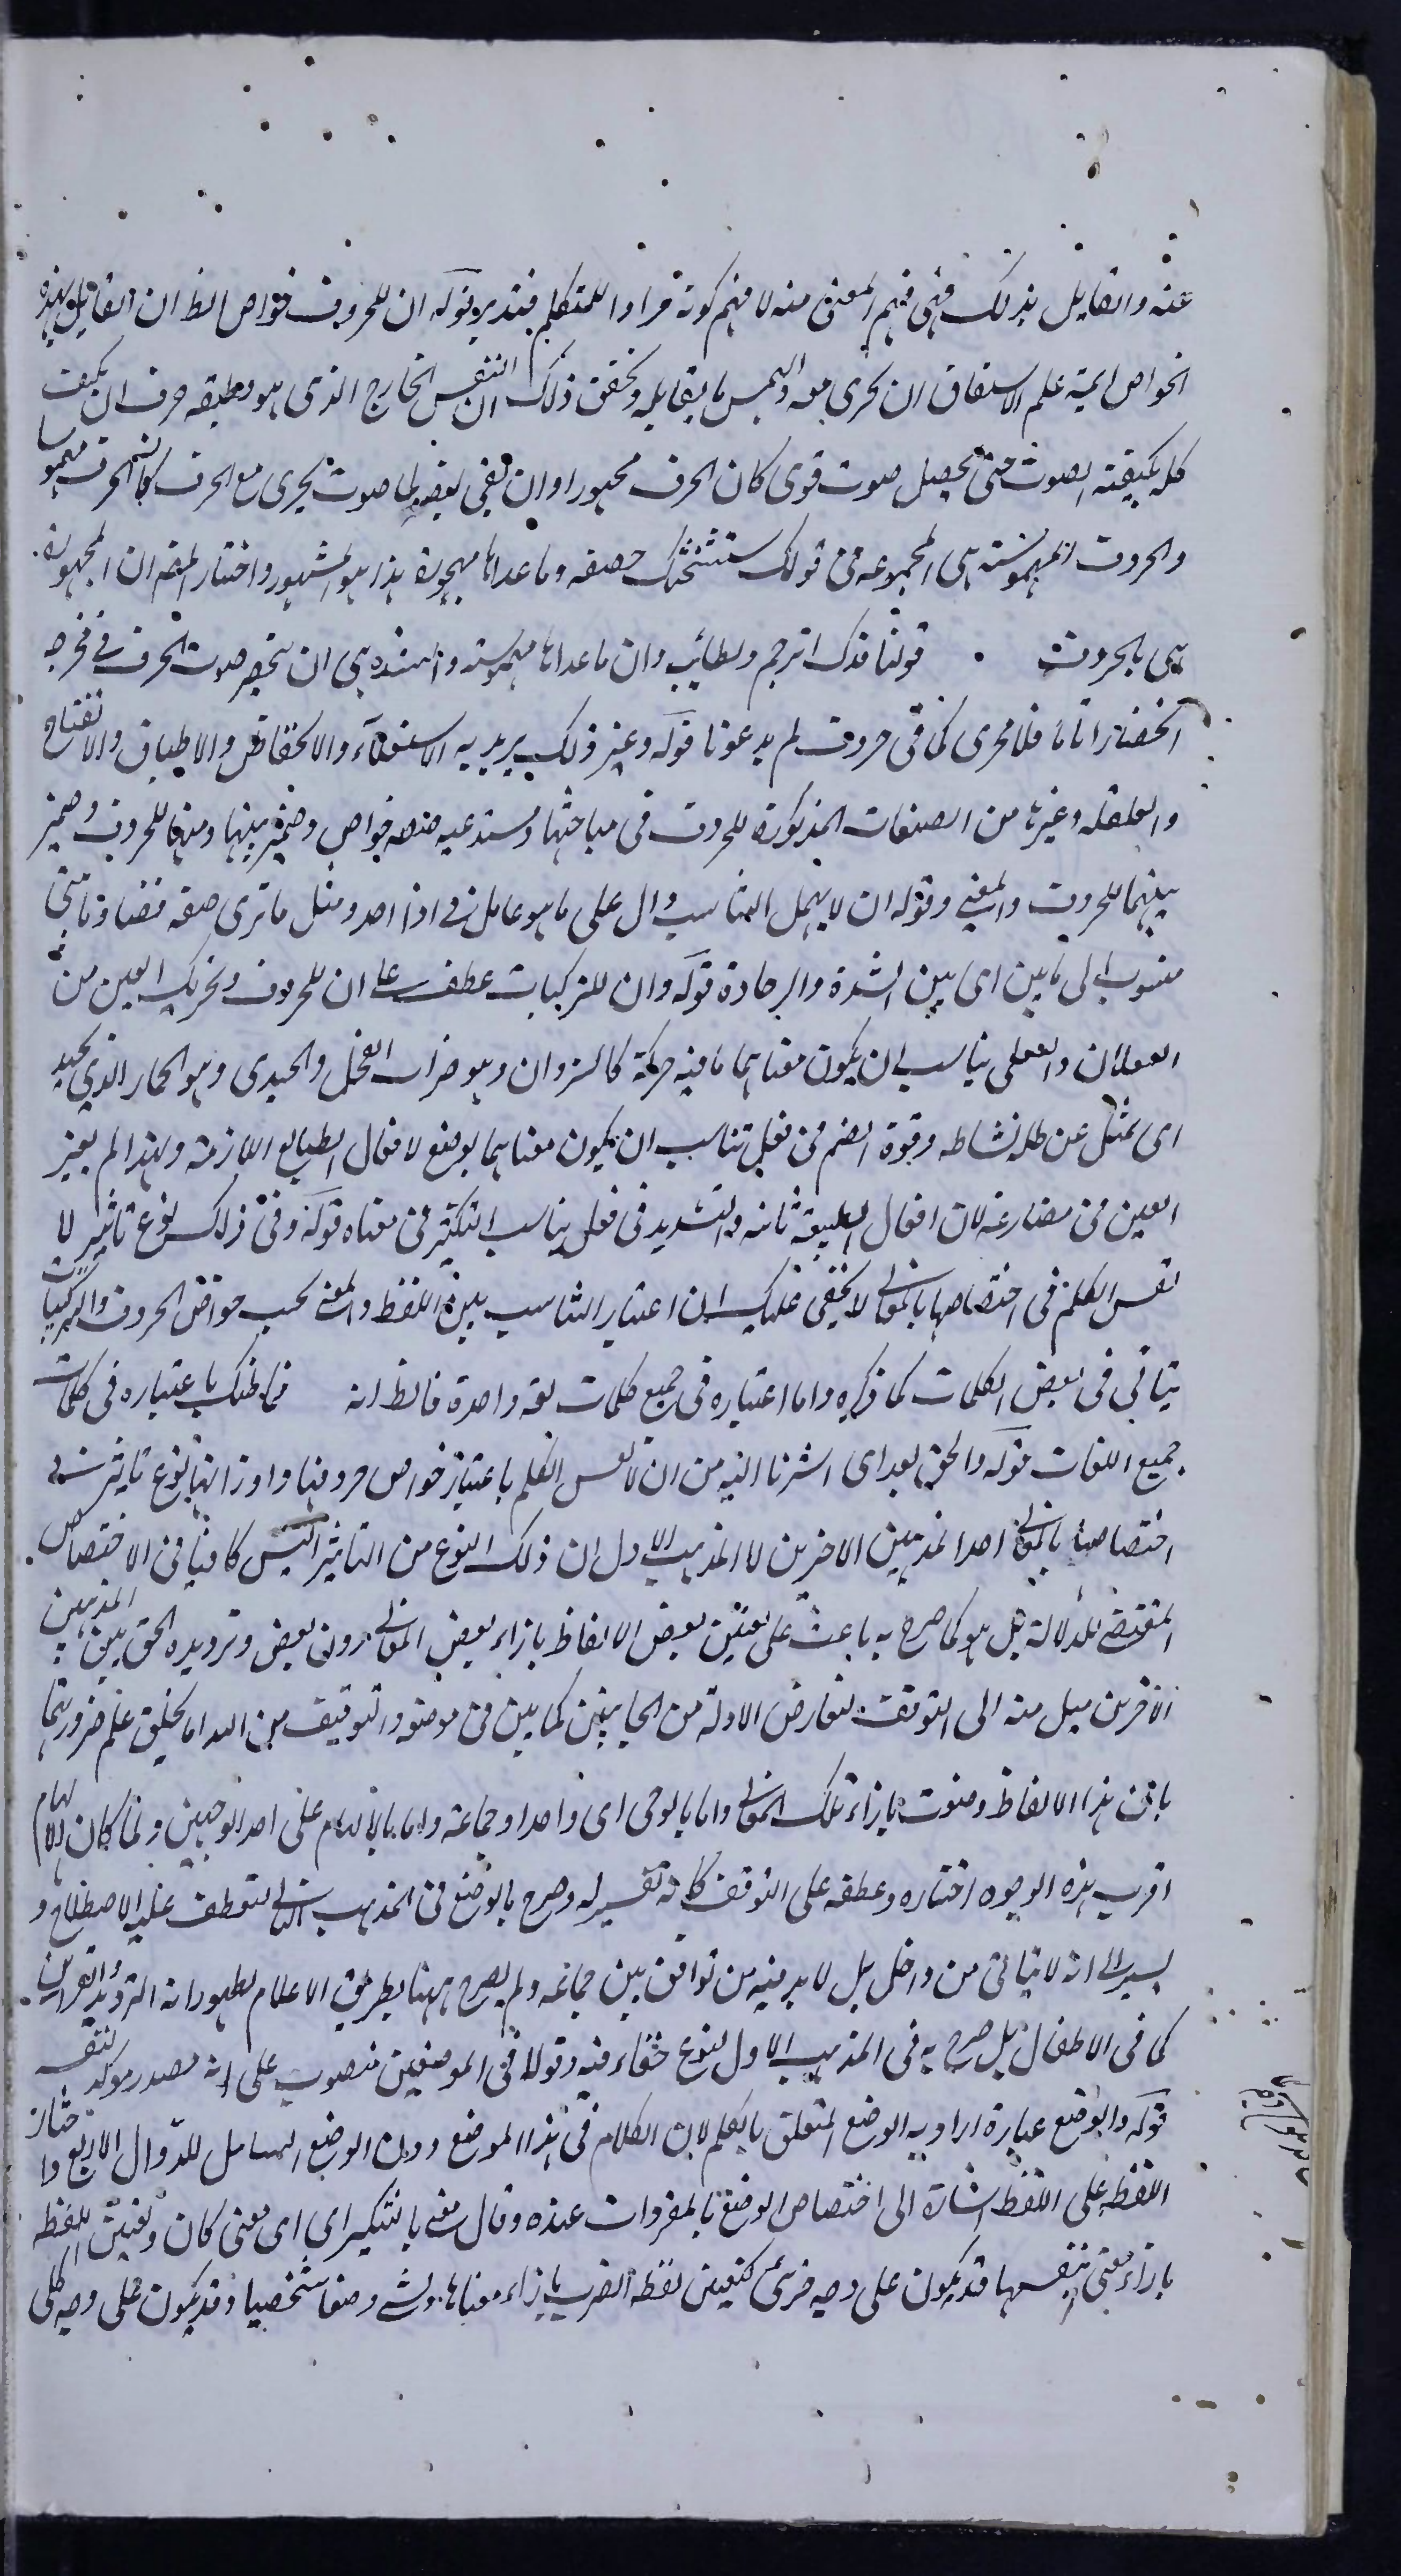 عنه والقايل بذلك فهى فهم المعنى منه لا فهم كونه مرادا للمتكلم فتدبر قوله ان للحروف خواص الظ ان القايل بهذه
الخواص ايمة علم الاشتقاق ان يجرى معه والهمس ما يقابله وتحقق ذلك ان النفس الخارج الذى هو وظيفه حرف ان تكيف
كله بكيفية الصوت حتى يحصل صوت قوى كان الحرف مجهورا وان بقى بعضه بلا صوت يجرى مع الحرف كان الحرف مهموسا
والحروف المهموسة هى المجموعه فى قولك ستشحثك خصفه وما عداها مجهورة هذا هو المشهور واختار المص ان المجهورة
هى بالحروف قولنا قدك اترجم ونطايب وان ما عداها مهموسه والشده هى ان ينحصر صوت الحرف فى مخرجه
انحصارا تاما فلا يجرى كما فى حروف لم يدعونا قوله وغير ذلك يريد به الاستعلاء والانخفاض والاطباق والانفتاح
والقلقله وغيرها من الصفات المذكورة للحروف فى مباحثها ومستدعيه خواص وضمير بينها ومنها للحروف وضمير
بينهما للحروف والمعنى وقوله ان لا يهمل التناسب دال على ما هو عامل فى اذا اخذ ومثل ما ترى صفه
منسوب الى ما بين اى بين الشدة والرخاوة قوله وان للتركيبات عطف على ان للحروف وتحريك العين من
الفعلان والفعلى يناسب ان يكون معناهما ما فيه حركة كالنزوان وهو ضراب الفحل والحيدى وهو الحمار الذى يحيد
اى يميل عن ظله لنشاطه وقوة الضم فى فعل تناسب ان يكون معناهما بوضع لافعال الطبايع اللازمة ولهذا لم يغير
العين فى مضارعه لان افعال الطبيعة ثابته والتشديد فى فعل يناسب التكثير فى معناه قوله وفى ذلك نوع تاثير لا
نفس الكلم فى اختصاصها بالمعانى لا يخفى عليك ان اعتبار التناسب بين اللفظ والمعنى بحسب خواص الحروف والتركيبات
يتاتى فى بعض الكلمات كما ذكره واما اعتباره فى جميع كلمات لغه واحدة فالظ انه فما ظنك باعتباره فى كلمات
جميع اللغات قوله والحق بعد اى اشرنا اليه من ان لانفس الكلم باعتبار خواص حروفها واوزانها نوع تاثير فى
اختصاصها بالمعانى احد المذهبين الاخرين لا المذهب الاول ان ذلك النوع من التاثير ليس كافيا فى الاختصاص
المقتضى للدلالة بل هو كما صرح به باعث على تعيين بعض الالفاظ بازاء بعض المعانى دون بعض وترديده الحق بين المذهبين
الاخرين ميل منه الى التوقف لتعارض الادلة من الجانبين كما بين فى موضعه والتوقيف من الله اما بخلق علم ضرورتها
بان هذا الالفاظ وضعت بازاء تلك المعانى واما بالوحى اى واحد او جماعة واما بالالهام على احد الوجهين ولما كان الالهام
اقرب هذه الوجوه اختاره وعطفه على التوقف كانه تفسير له وصرح بالوضع فى المذهب الثانى لتعطف عليه الاصطلاح و
يشير الى انه لا يتاتى من واحد بل لا بد فيه من توافق بين جماعه ولم يصرح ههنا بطريق الاعلام لظهورانه الترديد والقراين
كما فى الاطفال بل صرح به فى المذهب الاول لنوع خفاء فيه وقولا فى الموضعين منصوب على انه مصدر موكد لنفسه
قوله والوضع عبارة اراد به الوضع المتعلق بالكلم لان الكلام فى هذا الموضع ودون الوضع الشامل للدوال الاربع واختار
اللفظ على اللفظ اشارة الى اختصاص الوضع بالمفردات عنده وقال معنى بالتنكير اى اى معنى كان وتعيين اللفظه
بازاء معنى بنفسها قد يكون على وجه جزئى كتعيين لفظه الضرب بازاء معناها ويسمى وضعا شخصيا وقد يكون على وجه كلى